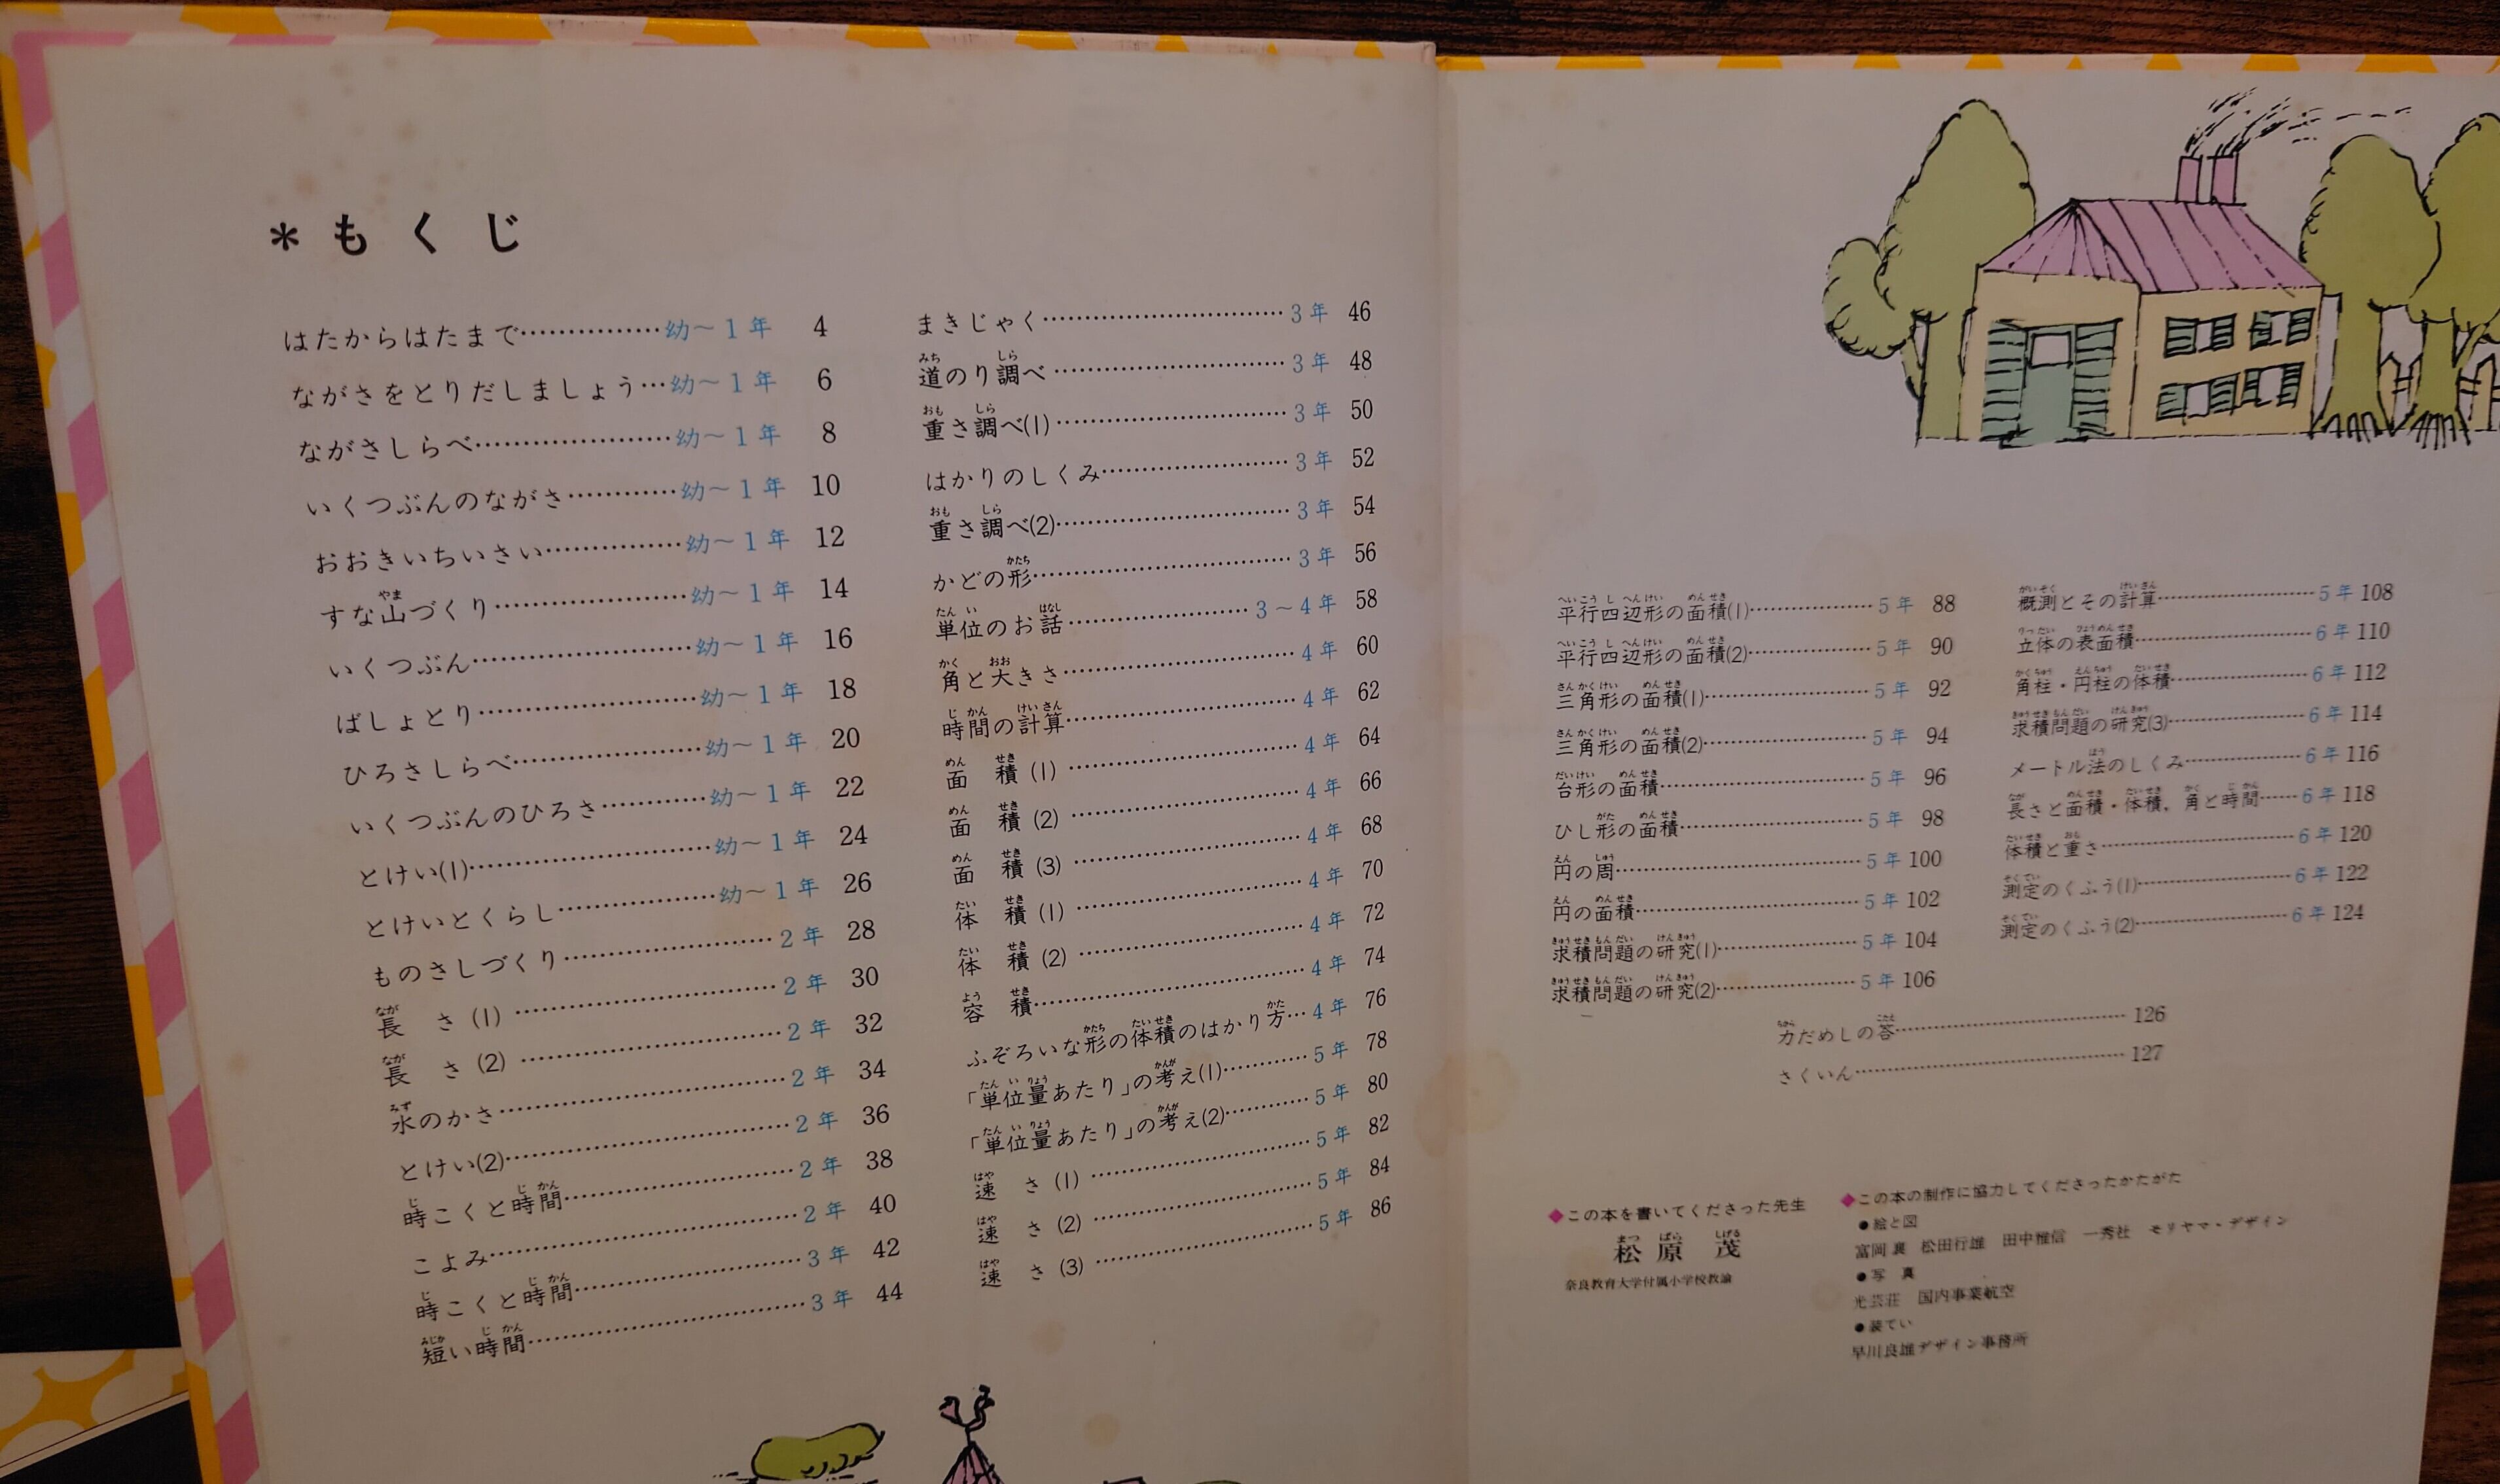 ＊もくじ
はたからはたまで……………幼～1年 4
ながさをとりだしましょう…幼～1年 6
ながさしらべ…………………幼～1年 8
いくつぶんのながさ…………幼～1年 10
おおきいちいさい……………幼～1年 12
すな山づくり…………………幼～1年 14
いくつぶん……………………幼～1年 16
ばしょとり……………………幼～1年 18
ひろさしらべ…………………幼～1年 20
いくつぶんのひろさ…………幼～1年 22
とけい(1)………………………幼～1年 24
とけいとくらし………………幼～1年 26
ものさしづくり……………………2年 28
長さ(1)……………………………2年 30
長さ(2)……………………………2年 32
水のかさ……………………………2年 34
とけい(2)……………………………2年 36
時こくと時間………………………2年 38
こよみ………………………………2年 40
時こくと時間………………………3年 42
短い時間……………………………3年 44
まきじゃく…………………………3年 46
道のり調べ…………………………3年 48
重さ調べ(1)…………………………3年 50
はかりのしくみ……………………3年 52
重さ調べ(2)…………………………3年 54
かどの形……………………………3年 56
単位のお話……………………3～4年 58
角と大きさ…………………………4年 60
時間の計算…………………………4年 62
面積(1)……………………………4年 64
面積(2)……………………………4年 66
面積(3)……………………………4年 68
体積(1)……………………………4年 70
体積(2)……………………………4年 72
容積…………………………………4年 74
ふぞろいな形の体積のはかり方…4年 76
「単位量あたり」の考え(1)…………5年 78
「単位量あたり」の考え(2)…………5年 80
速さ(1)……………………………5年 82
速さ(2)……………………………5年 84
速さ(3)……………………………5年 86
平行四辺形の面積(1)………………5年 88
平行四辺形の面積(2)………………5年 90
三角形の面積(1)……………………5年 92
三角形の面積(2)……………………5年 94
台形の面積…………………………5年 96
ひし形の面積………………………5年 98
円の周………………………………5年 100
円の面積……………………………5年 102
求積問題の研究(1)…………………5年 104
求積問題の研究(2)…………………5年 106
概測とその計算……………………5年 108
立体の表面積………………………6年 110
角柱・円柱の体積…………………6年 112
求積問題の研究(3)…………………6年 114
メートル法のしくみ………………6年 116
長さと面積・体積，角と時間……6年 118
体積と重さ…………………………6年 120
測定のくふう(1)……………………6年 122
測定のくふう(2)……………………6年 124
力だめしの答………………………126
さくいん……………………………127
◆この本を書いてくださった先生
松原 茂
奈良教育大学付属小学校教諭
◆この本の制作に協力してくださったかたがた
●絵と図
富岡 松田行雄 田中惟信 一秀社 モリヤマ・デザイン
●写真
光芸荘 国内事業航空
●装てい
早川良雄デザイン事務所